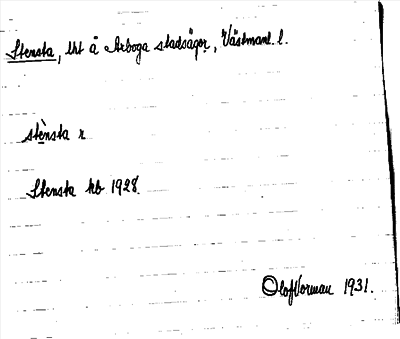 Stensta, lht å Arboga stadsägor, Västmanl. l.
stè̀nsta r
Stensta kb 1928.
Olof Vorman 1931.